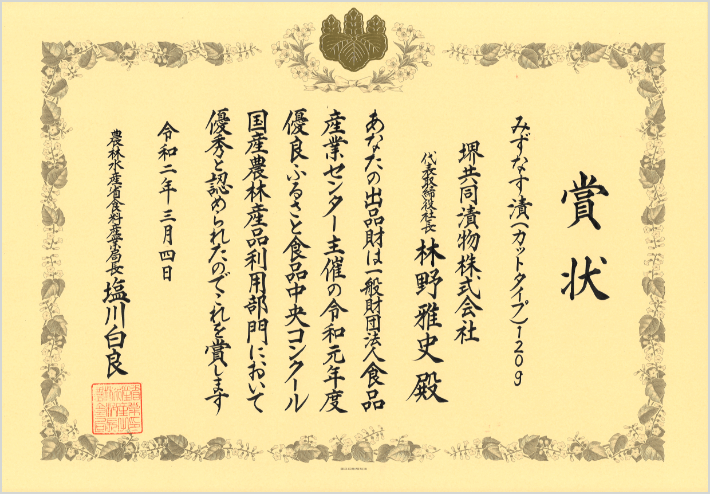 賞状
みずなす漬(カットタイプ)120g
堺共同漬物株式会社
代表取締役社長 林野雅史殿
あなたの出品財は一般財団法人食品
産業センター主催の令和元年度
優良ふるさと食品中央コンクール
国産農林産品利用部門において
優秀と認められたのでこれを賞します
令和二年三月四日
農林水産省食料産業局長 塩川白良